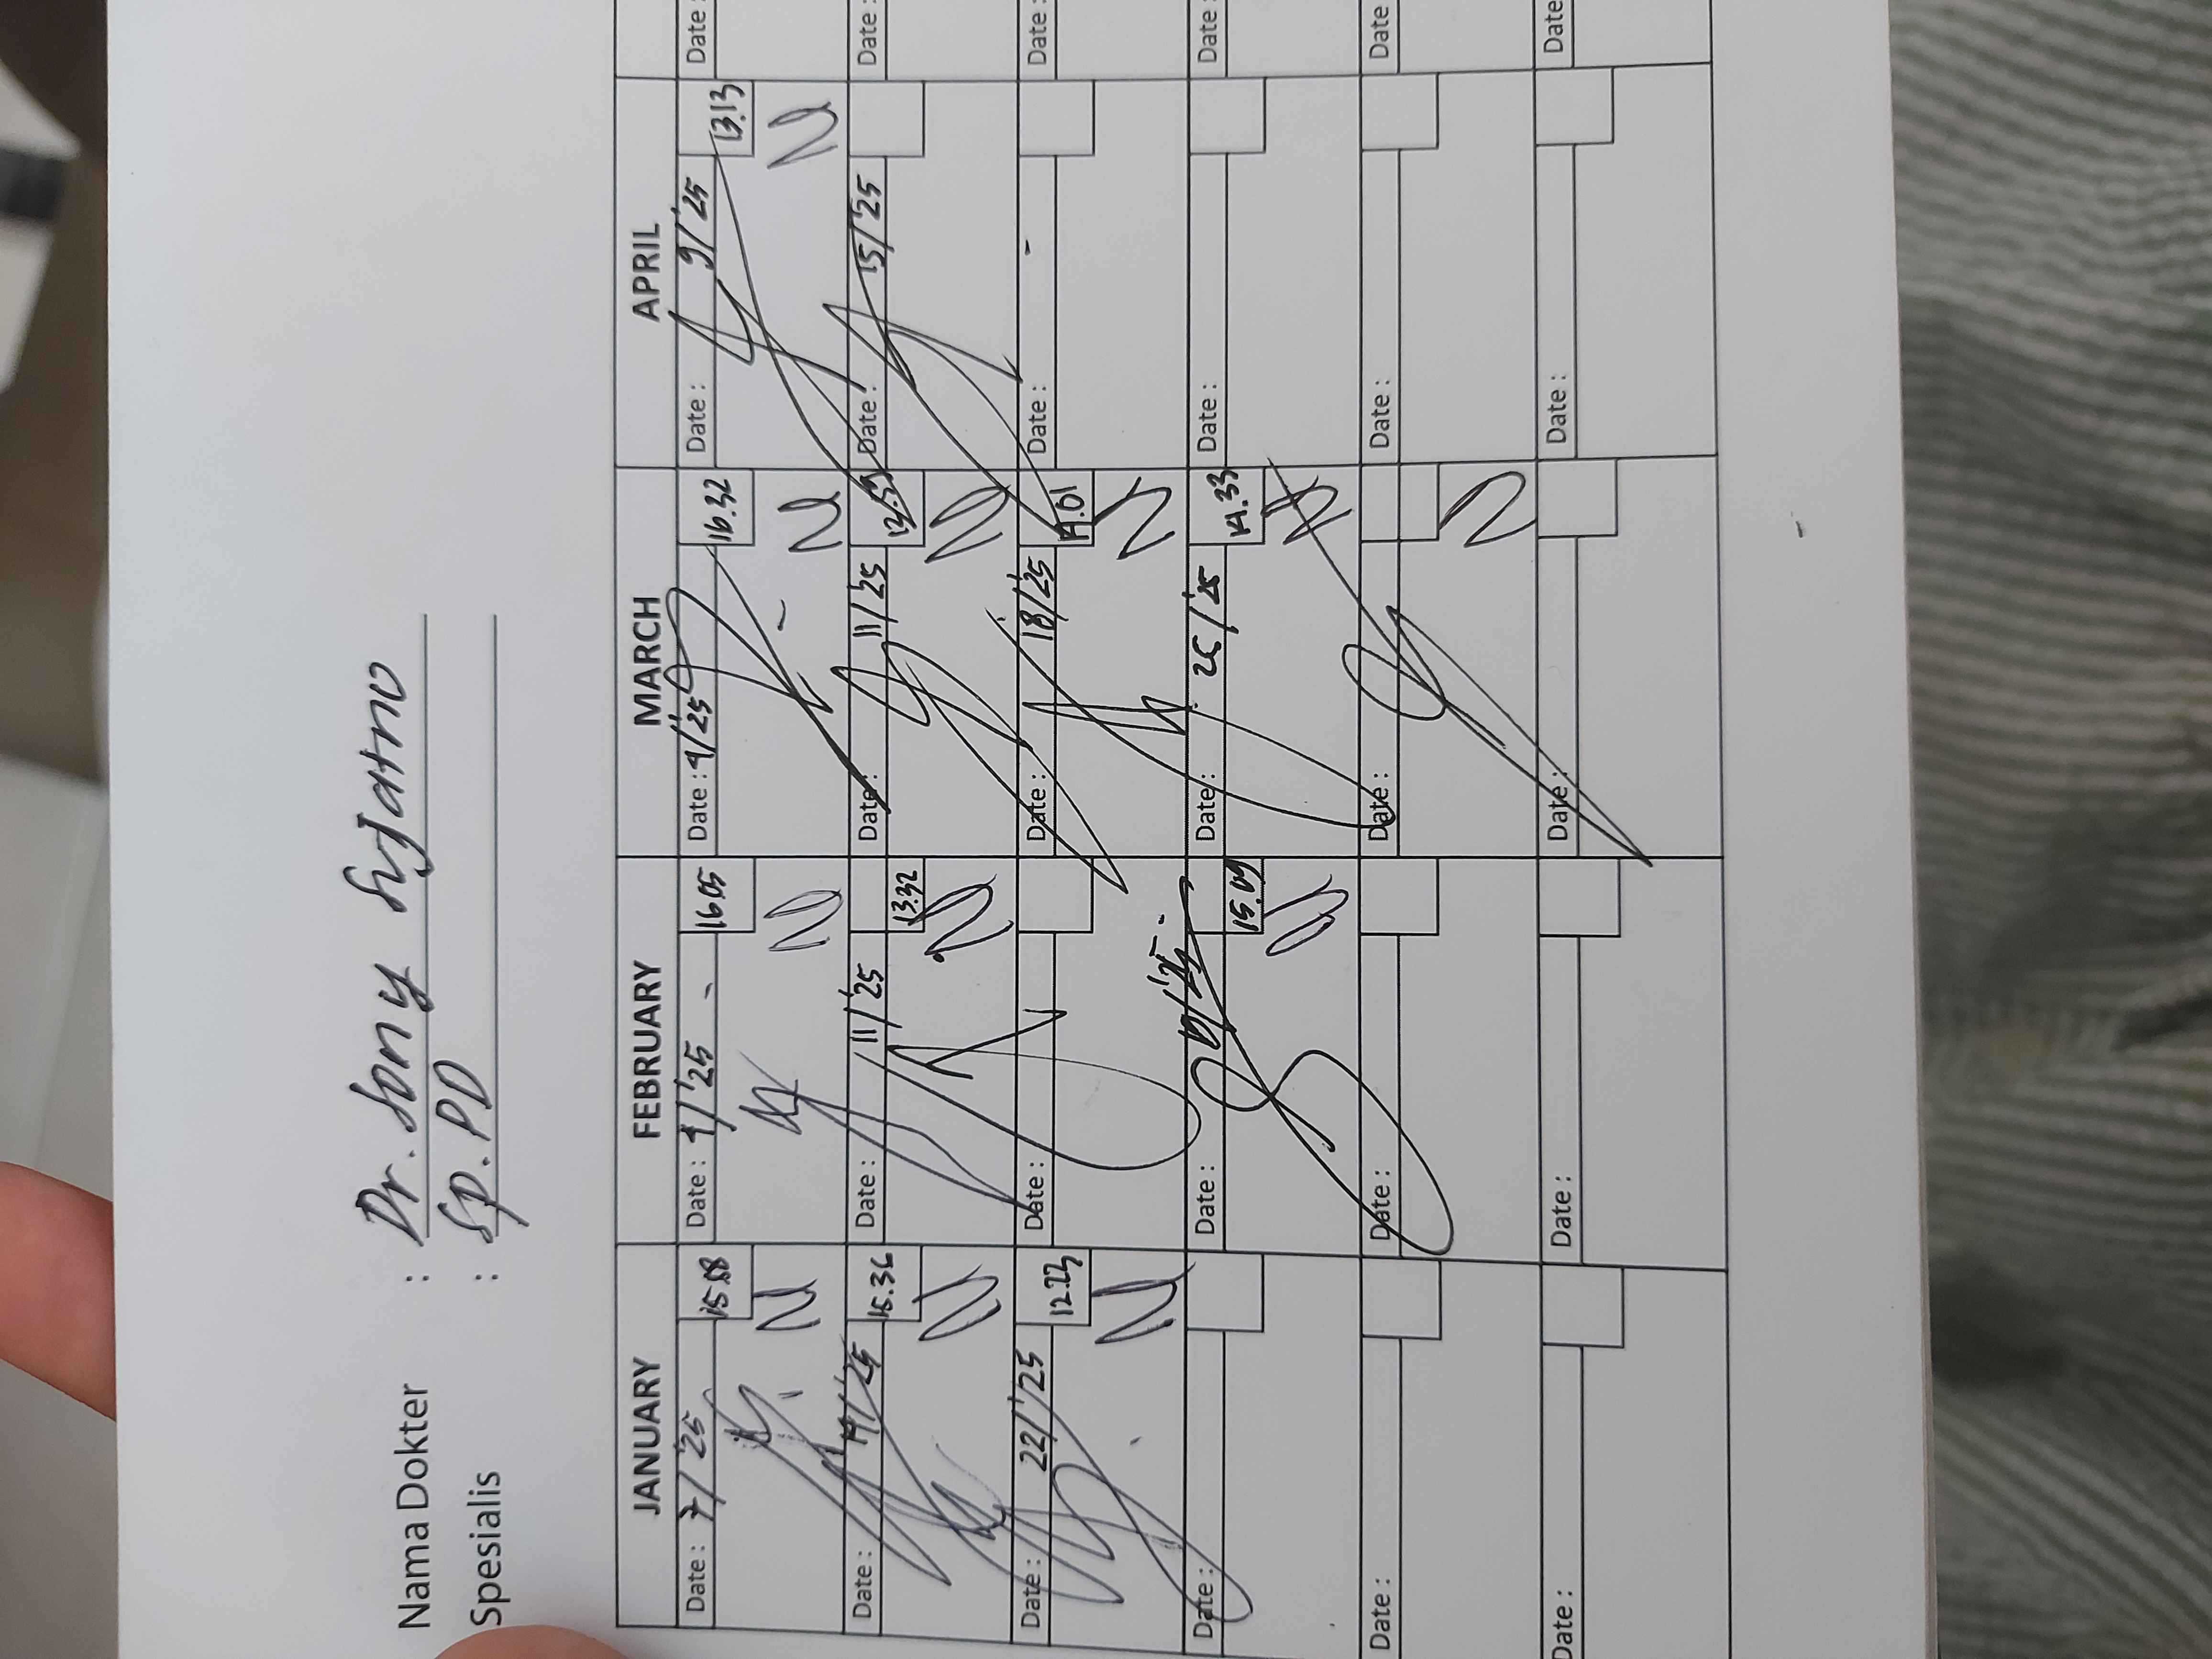 Nama Dokter : Dr. Sony Sujatno
Spesialis : Sp. PD
JANUARY FEBRUARY MARCH APRIL
Date : 7/'25 15.58 Date : 4/'25 16.05 Date : 4/'25 16.32 Date : 9/'25 13.13 Date :
Date : 14/'25 15.36 Date : 11/'25 13.32 Date : 11/'25 Date : 15/'25 Date :
Date : 22/'25 12.23 Date : Date : 18/'25 14.01 Date : Date :
Date : Date : 15.09 Date : 25/'25 14.33 Date : Date :
Date : Date : Date : Date : Date
Date : Date : Date : Date : Date